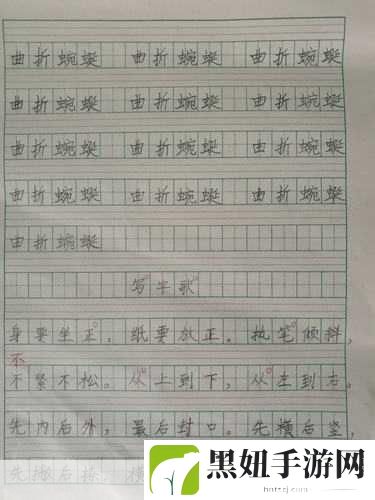 曲折蜿蜒 曲折蜿蜒 曲折蜿蜒
曲折蜿蜒 曲折蜿蜒 曲折蜿蜒
曲折蜿蜒 曲折蜿蜒 曲折蜿蜒
曲折蜿蜒 曲折蜿蜒 曲折蜿蜒
曲折蜿蜒
写字歌
身要坐正。纸要放正。执笔倾斜，
不
不紧不松。从上到下，从左到右。
先内后外，最后封口。先横后竖，
先撇后捺，横
黑妞手游网